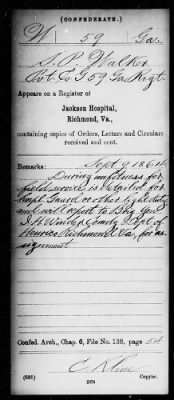 (CONFEDERATE.)
W 59 Ga.
S. P. Walker
Pvt Co G 59 Ga Regt.
Appears on a Register of
Jackson Hospital,
Richmond, Va.,
containing copies of Orders, Letters and Circulars
received and sent.
Remarks: Sept 9 1864
During unfitness for
field service is detailed for
Hosp'l Guard or other light duty
and will report to Brig Genl
Winder, Comdg Dept of
Henrico Richmond Va. for as-
signment
Confed. Arch., Chap. 6, File No. 138, page 54
E Kline
(635) 1074 Copyist.